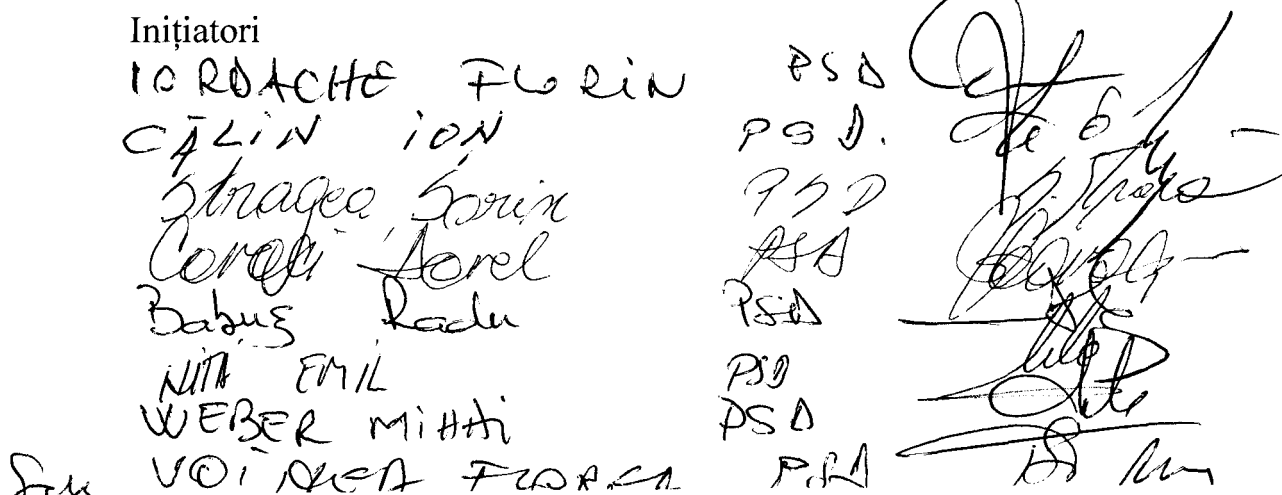 Inițiatori
IORDACHE FLORIN PSD
CĂLIN ION PSD.
Stragea Sorin PSD
Coroli Dorel PSD
Babuș Radu PSD
NIȚĂ EMIL PSD
WEBER MIHAI PSD
VOINEA FLOREA PSD